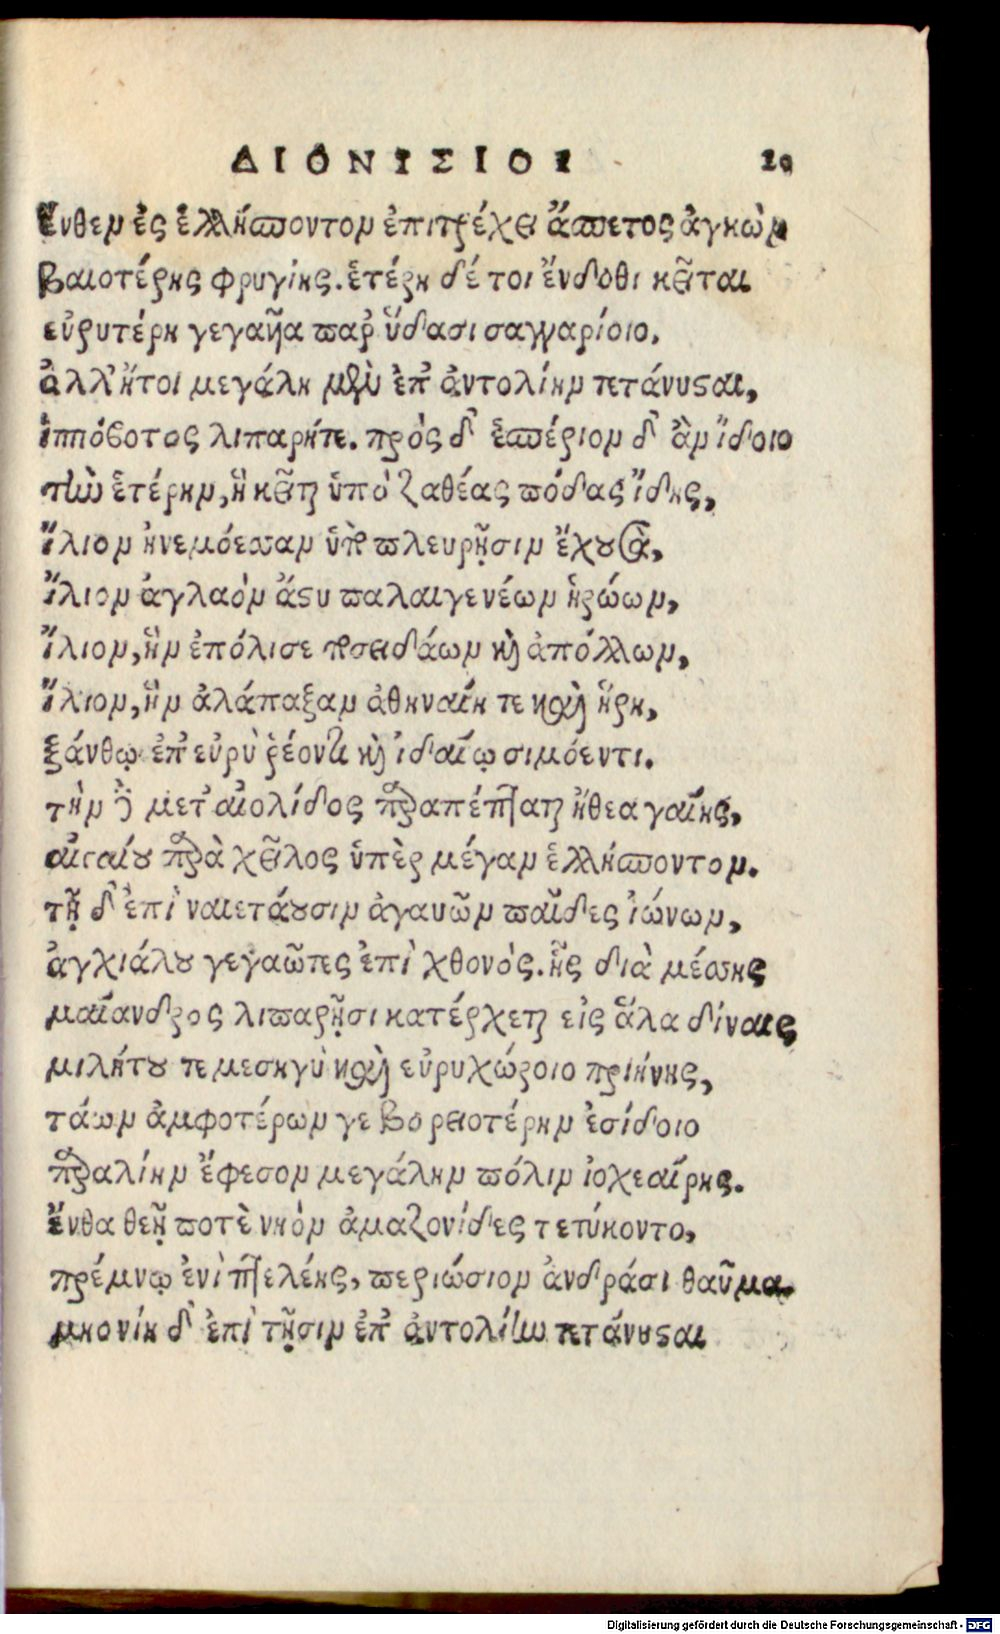 ΔΙΟΝΥΣΙΟΥ 20
Ἔνθεν ἐς ἑλλήσποντον ἐπιτρέχει ἄσπετος ἀγκὼν
βαιοτέρης φρυγίης. ἑτέρη δέ τοι ἔνδοθι κεῖται
εὐρυτέρη γεγαῆα παρ᾽ ὕδασι σαγγαρίοιο.
ἀλλ᾽ ἤτοι μεγάλη μὲν ἐπ᾽ ἀντολίην τετάνυσαι,
ἱππόβοτος λιπαρήτε. πρὸς δ᾽ ἑσπέριον δ᾽ ἂν ἴδοιο
τὴν ἑτέρην, ἣ κεῖται ὑπὸ ζαθέας πόδας ἴδης,
ἴλιον ἠνεμόεσσαν ὑπὸ πλευρῇσιν ἔχουσα,
ἴλιον ἀγλαὸν ἄστυ παλαιγενέων ἡρώων,
ἴλιον, ἣν ἐπόλισε ποσειδάων καὶ ἀπόλλων,
ἴλιον, ἣν ἀλάπαξαν ἀθηναίη τε καὶ ἥρη,
ξάνθῳ ἐπ᾽ εὐρὺ ῥέοντι καὶ ἰδαίῳ σιμόεντι.
τὴν δὲ μετ᾽ αἰολίδος παραπέπταται ἤθεα γαίης,
αἰγαίου παρὰ χεῖλος ὑπὲρ μέγαν ἑλλήσποντον.
τῇ δ᾽ ἐπὶ ναιετάουσιν ἀγαυῶν παῖδες ἰώνων,
ἀγχιάλου γεγαῶτες ἐπὶ χθονός. ἧς διὰ μέσσης
μαίανδρος λιπαρῇσι κατέρχεται εἰς ἅλα δίναις
μιλήτου τε μεσηγὺ καὶ εὐρυχώροιο πριήνης,
τάων ἀμφοτέρων γε βορειοτέρην ἐσίδοιο
παραλίην ἔφεσον μεγάλην πόλιν ἰοχεαίρης.
ἔνθα θεῇ ποτὲ νηὸν ἀμαζονίδες τετύκοντο,
πρέμνῳ ἐνὶ πτελέης, περιώσιον ἀνδράσι θαῦμα.
μῃονίη δ᾽ ἐπὶ τῇσιν ἐπ᾽ ἀντολίην τετάνυσαι
Digitalisierung gefördert durch die Deutsche Forschungsgemeinschaft - DFG